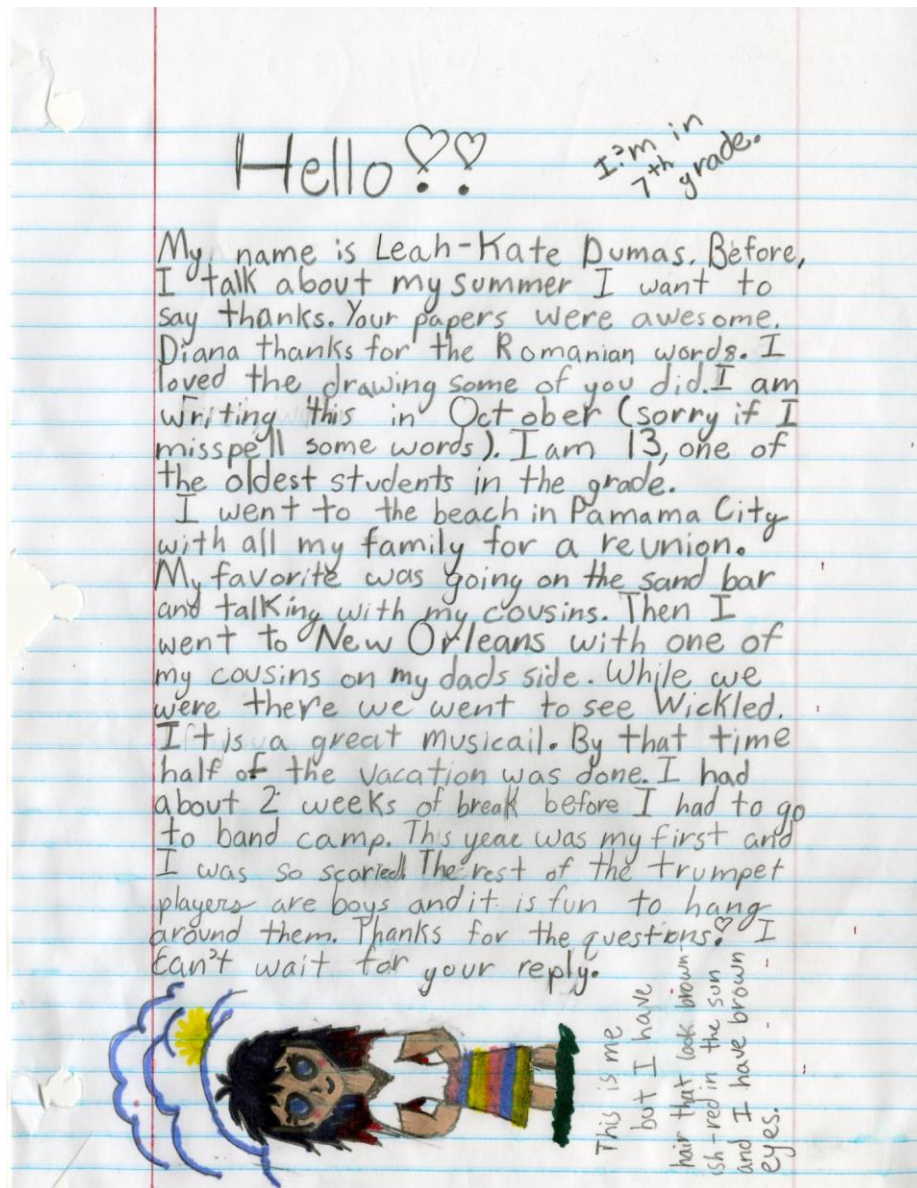 Hello!!
I'm in
7th grade.
My name is Leah-Kate Dumas. Before,
I talk about my summer I want to
say thanks. Your papers were awesome.
Diana thanks for the Romanian words. I
loved the drawing some of you did. I am
writing this in October (sorry if I
misspell some words). I am 13, one of
the oldest students in the grade.
I went to the beach in Pamama City
with all my family for a reunion.
My favorite was going on the sand bar
and talking with my cousins. Then I
went to New Orleans with one of
my cousins on my dads side. While we
were there we went to see Wickled.
It is a great musicail. By that time
half of the vacation was done. I had
about 2 weeks of break before I had to go
to band camp. This year was my first and
I was so scaried! The rest of the trumpet
players are boys and it is fun to hang
around them. Thanks for the questions! I
can't wait for your reply.
This is me
but I have
hair that look brown-
ish-red in the sun
and I have brown
eyes.